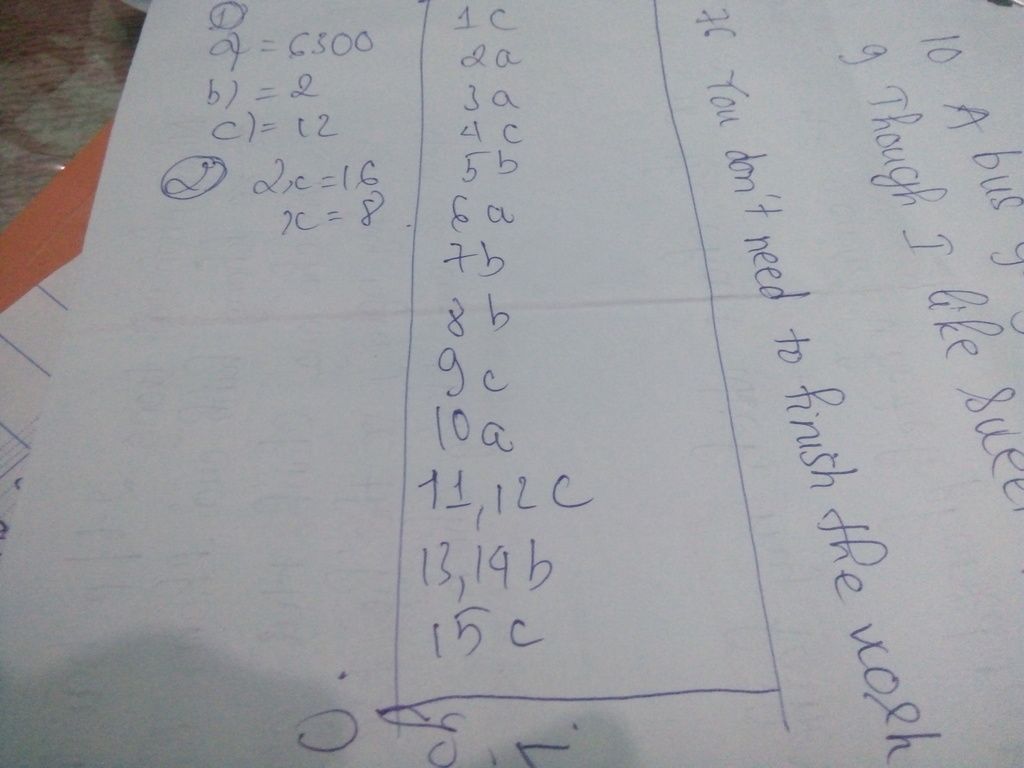 ①
a) = 6300
b) = 2
c) = 12
② 2x = 16
x = 8
1 c
2 a
3 a
4 c
5 b
6 a
7 b
8 b
9 c
10 a
11, 12 c
13, 14 b
15 c
10 A bus
9 Though I like
You don't need to finish the